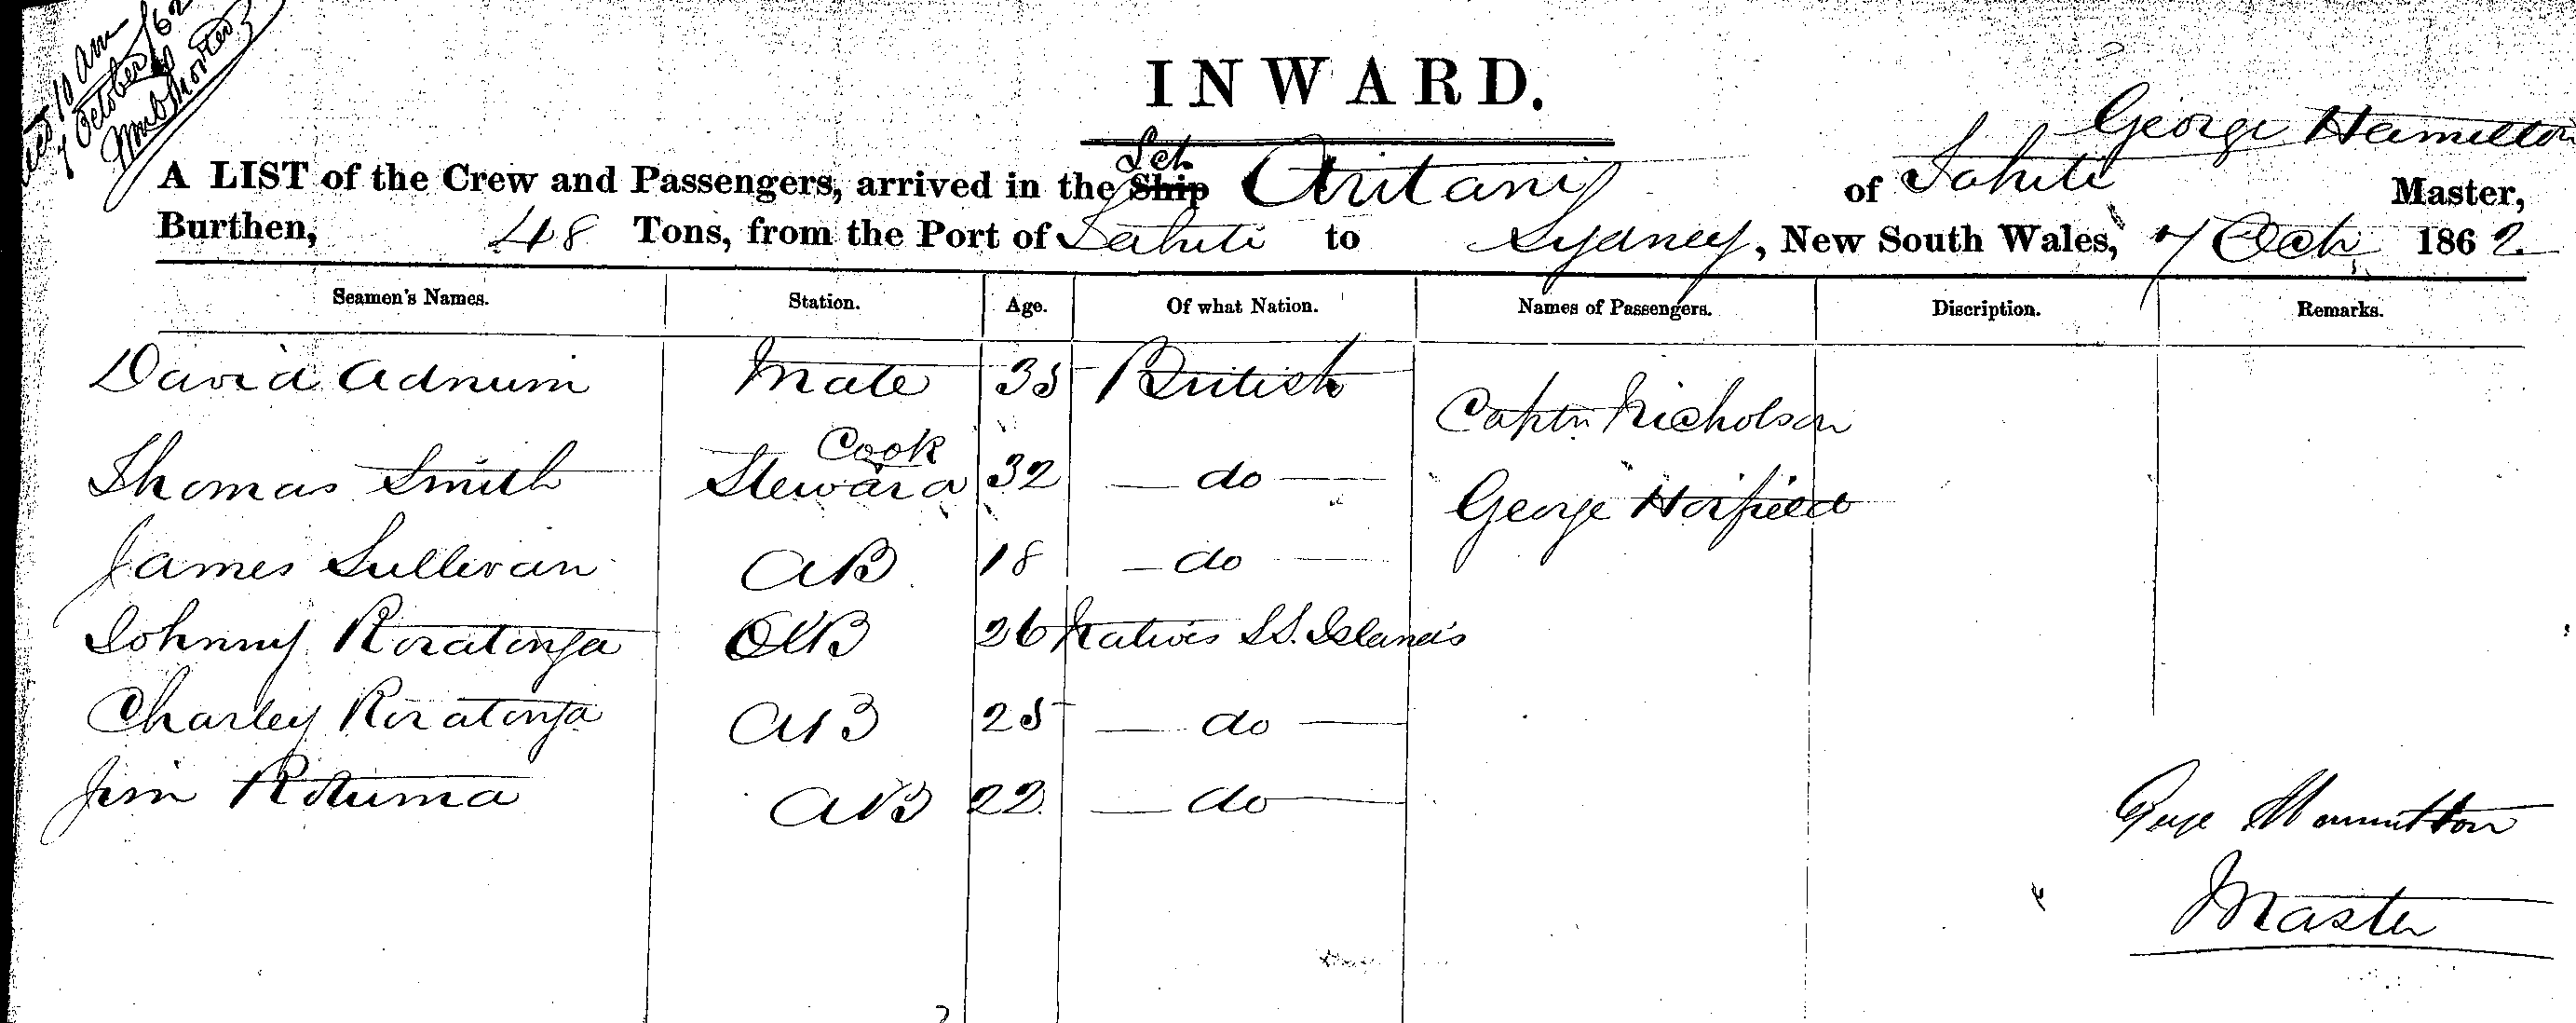 10 am
7 October /62
INWARD.
George Hamilton
A LIST of the Crew and Passengers, arrived in the Ship Sch Aritani of Tahiti Master,
Burthen, 48 Tons, from the Port of Tahiti to Sydney, New South Wales, 7 Oct 1862
Seamen's Names. Station. Age. Of what Nation. Names of Passengers. Discription. Remarks.
David Adnum Mate 35 British
Captn Nicholson
Thomas Smith Cook Steward 32 do
George Horfield
James Sullivan AB 18 do
Johnny Roratonga AB 26 Natives S.S. Islands
Charley Roratonga AB 25 do
Jim Rotuma AB 22 do
George Hamilton
Master